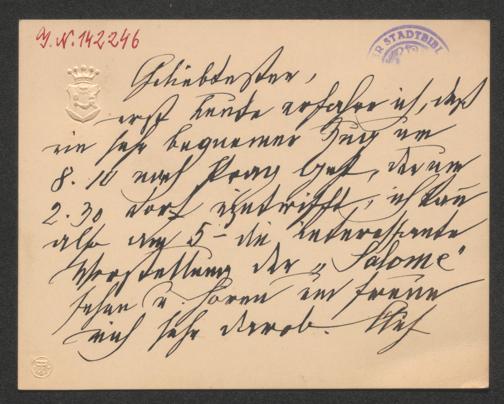 J.N. 142246
ER STADTBIBL
Geliebtester,
erst heute erfahre ich, daß
ein sehr bequemer Zug um
8.10 nach Prag geht, der um
2.30 dort eintrifft, ich kann
also am 5ⁿ die interessante
Vorstellung der „Salome"
sehen u. hören und freue
mich sehr darob. Auf